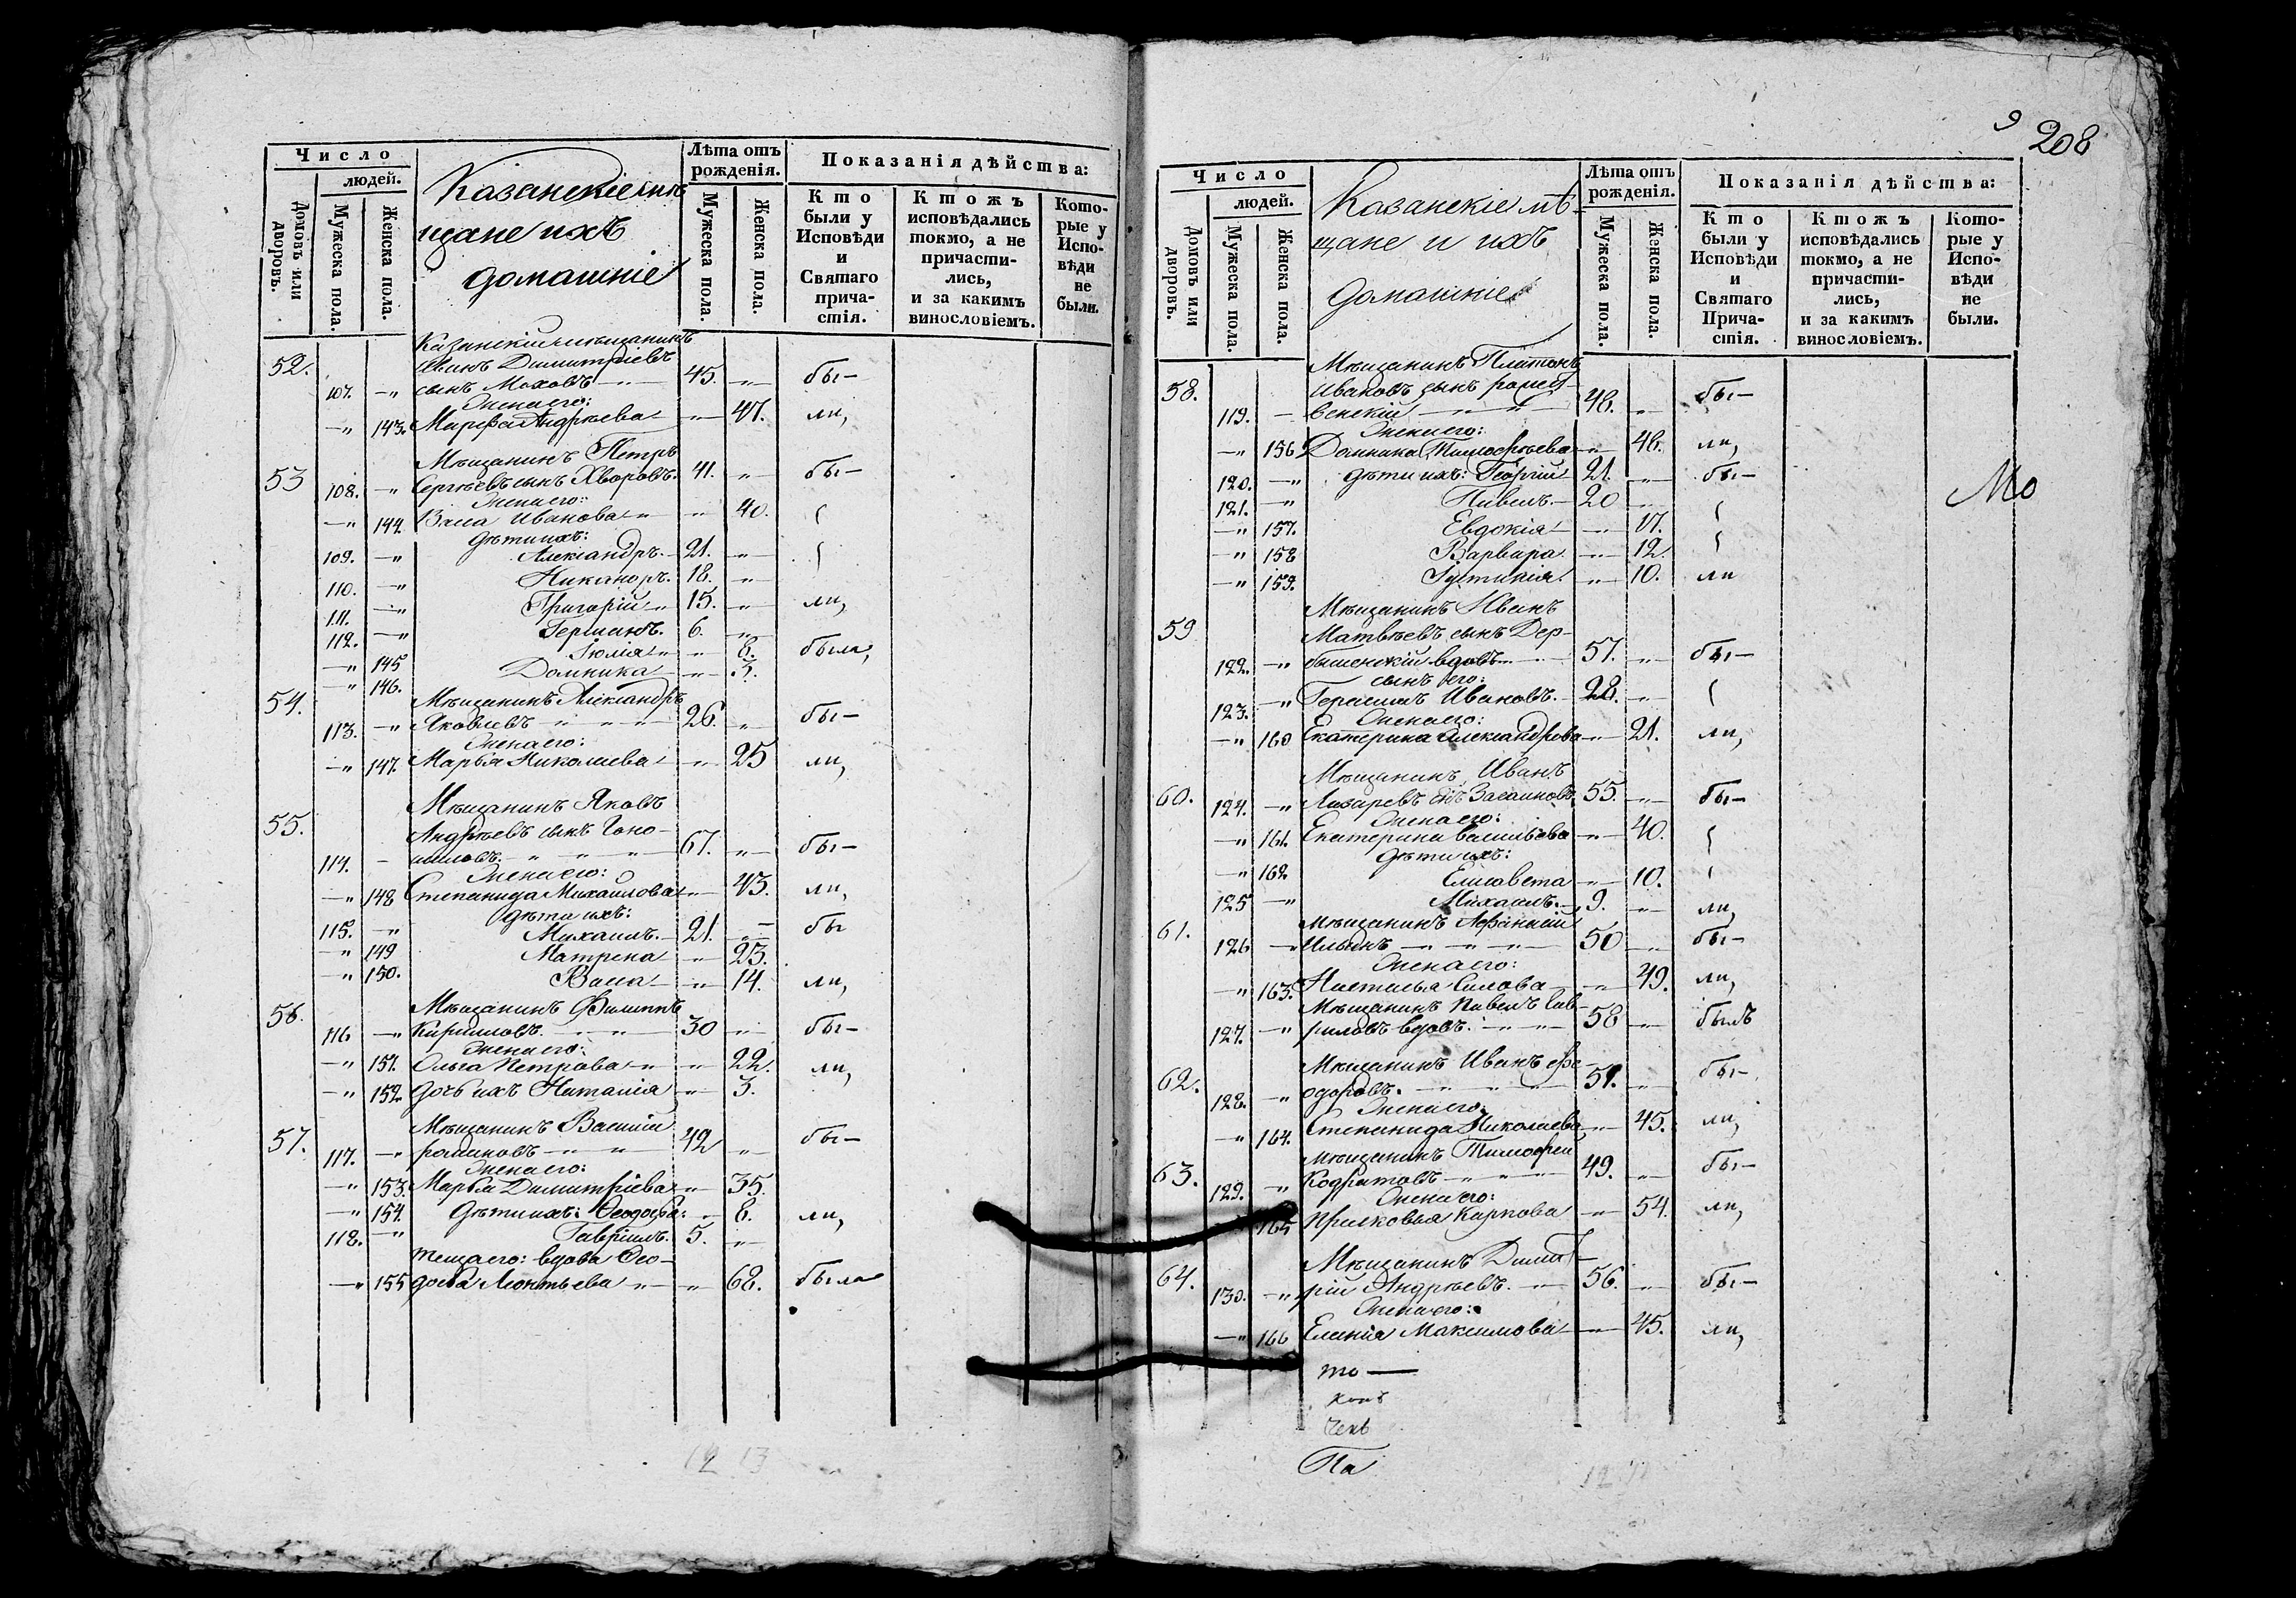 Число
людей.
Домовъ или дворовъ.
Мужеска пола.
Женска пола.
Казанскіе мѣ
щане ихъ
домашніе
Лѣта отъ
рожденія.
Мужеска пола.
Женска пола.
Показанія дѣйства:
Кто
были у
Исповѣди
и
Святаго
прича-
стія.
Ктожъ
исповѣдались
токмо, а не
причасти-
лись,
и за какимъ
винословіемъ.
Кото-
рые у
Испо-
вѣди
не
были.
Казанскій мѣщанинъ
52. Димитріевъ
107. -„ сынъ Моховъ 45. -„- бы-
Жена его:
-„ 143. Марфа Андреева -„- 47. ли,
Мѣщанинъ Петръ
53 108. -„ Сергѣевъ сынъ Хворовъ. 41. -„- бы-
Жена его:
-„ 144. Васса Иванова -„- 40.
дѣти ихъ:
109. -„ Александръ. 21. -„-
110. -„ Никаноръ. 18. -„-
111. -„ Григорій 15. -„- ли,
112. -„ Германъ. 6. -„-
-„ 145 Іюлія -„- 8. была,
-„ 146. Домника -„- 3.
54. Мѣщанинъ Александръ
113. -„ Яковлевъ 26. -„- бы-
Жена его:
-„ 147. Марья Николаева -„- 25 ли,
Мѣщанинъ Яковъ
55. Андрѣевъ сынъ
114. - 67. -„- бы-
Жена его:
-„ 148 Степанида Михайлова -„- 43. ли,
дѣти ихъ:
115. -„ Михаилъ. 21. -„- бы
-„ 149 Матрена -„- 23.
-„ 150. Васса -„- 14. ли,
56. Мѣщанинъ Филиппъ
116 -„ Кирилловъ. 30 -„- бы-
Жена его:
-„ 151. Ольга Петрова -„- 22. ли,
-„ 152. дочь ихъ Наталія -„- 3.
Мѣщанинъ Василій
57. 117. -„ родіновъ 42 -„- бы-
Жена его:
-„ 153. Марья Димитріева -„- 35.
-„ 154. дѣти ихъ: Ѳеодора: -„- 8. ли,
118. -„ Гавріилъ. 5. -„-
теща его: вдова Ѳео-
-„ 155 досія Леонтьева -„- 68. была
12 13
9
208
Число
людей.
Домовъ или дворовъ.
Мужеска пола.
Женска пола.
Казанскіе мѣ-
щане и ихъ
домашніе
Лѣта отъ
рожденія.
Мужеска пола.
Женска пола.
Показанія дѣйства:
Кто
были у
Исповѣди
и
Святаго
Прича-
стія.
Ктожъ
исповѣдались
токмо, а не
причасти-
лись,
и за какимъ
винословіемъ.
Кото-
рые у
Испо-
вѣди
не
были.
Мѣщанинъ Платонъ
58. Ивановъ сынъ
119. - венскій 48. -„- бы-
Жена его:
-„ 156 Домника Тимофѣева -„- 48. ли,
120. -„ дѣти ихъ: Георгій 21. -„- бы-
121. -„ Павелъ. 20 -„-
-„ 157. Евдокія -„- 17.
-„ 158 Варвара -„- 12.
-„ 159. -„- 10. ли
Мо
Мѣщанинъ Иванъ
59 Матвѣевъ сынъ Дер-
122. -„ бышенскій вдовъ 57. -„- бы-
сынъ его:
123. -„ Герасимъ Ивановъ. 28. -„-
Жена его:
-„ 160 Екатерина Александрова -„- 21. ли,
Мѣщанинъ Иванъ
60. 124. -„ Лазаревъ 55. -„- бы-
Жена его:
-„ 161. Екатерина Васильева -„- 40.
дѣти ихъ:
-„ 162 Елисавета -„- 10.
125 -„ Михаилъ. 9. -„- ли,
61. Мѣщанинъ Афанасій
126 -„ Ильинъ 50 -„- бы-
Жена его:
-„ 163. Настасья Силова -„- 49. ли,
Мѣщанинъ Павелъ Гав-
127. -„ риловъ вдовъ. 58 -„- былъ
Мѣщанинъ Иванъ Фе
62. 128. -„ одоровъ. 51. -„- бы-
Жена его:
-„ 164. Степанида Николаева -„- 45. ли,
Мѣщанинъ Тимофей
63. 129. -„ Кодратовъ 49. -„- бы-
Жена его:
165 Прасковья Карпова -„- 54. ли,
Мѣщанинъ Димит-
64. 130. -„ рій Андрѣевъ. 56. -„- бы-
Жена его:
-„ 166 Еленія Максимова -„- 45. ли,
то
На
12 11